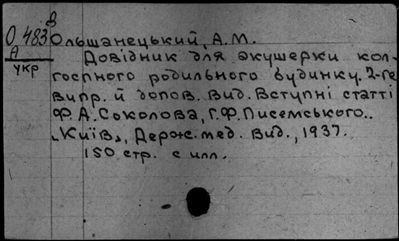 В
О 483
А
укр
Ольшанецький, А.М.
Довідник для акушерки кол-
госпного родильного будинку. 2-ге
випр. й допов. вид. Вступні статті
Ф.А.Соколова, Г.Ф.Писемського..
"Київ", Держ.мед. вид., 1937.
150 стр. с илл.